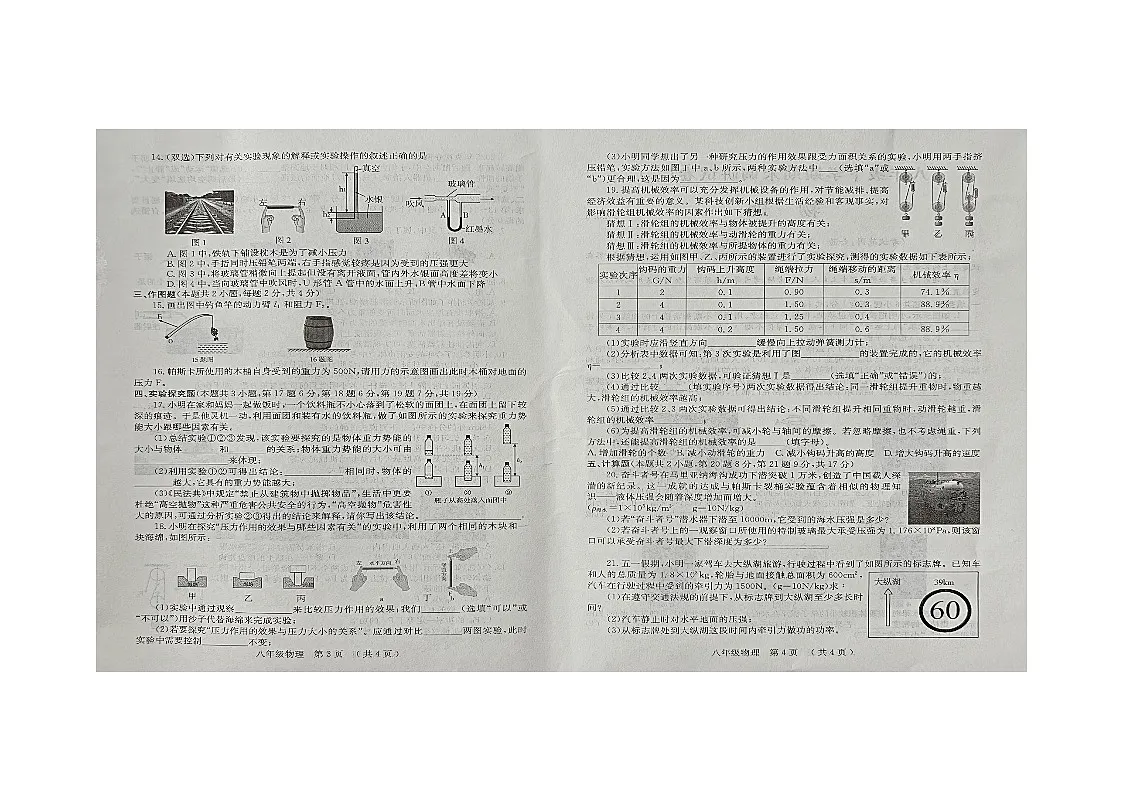 14.(双选)下列对有关实验现象的解释或实验操作的叙述正确的是
真空
玻璃管
吹风
水银
左 右
h₁
h₂
A B
红墨水
图1 图2 图3 图4
A.图1中,铁轨下铺设枕木是为了减小压力
B.图2中,手指同时压铅笔两端,右手指感觉较疼是因为受到的压强更大
C.图3中,将玻璃管稍微向上提起但没有离开液面,管内外水银面高度差将变小
D.图4中,当向玻璃管中吹风时,U形管A管中的水面上升,B管中水面下降
三、作图题(本题共2小题,每题2分,共4分)
15.画出图中钓鱼竿的动力臂L₁和阻力F₂。
F₁
O
15题图 16题图
16.帕斯卡所使用的木桶自身受到的重力为500N,请用力的示意图画出此时木桶对地面的
压力F。
四、实验探究题(本题共3小题,第17题6分,第18题6分,第19题7分,共19分)
17.小明在家和妈妈一起做饭时,一个饮料瓶不小心落到了松软的面团上,在面团上留下较
深的痕迹。于是他灵机一动,利用面团和装有水的饮料瓶,做了如图所示的实验来探究重力势
能大小跟哪些因素有关。
(1)总结实验①②③发现,该实验要探究的是物体重力势能的
大小与物体______和______的关系;物体重力势能的大小可由
______来体现;
(2)利用实验①②可得出结论:______相同时,物体的
______越大,它具有的重力势能越大;
① ② ③
瓶子从高处落入面团中
(3)《民法典》中规定"禁止从建筑物中抛掷物品",生活中更要
杜绝"高空抛物"这种严重危害公共安全的行为,"高空抛物"危害性
大的原因,可通过分析实验②③得出的结论来解释,请你写出该结论。
______。
18.小明在探究"压力作用的效果与哪些因素有关"的实验中,利用了两个相同的木块和一
块海绵,如图所示:
左 水平方向 右
甲 乙 丙 a 丁 b
(1)实验中通过观察______来比较压力作用的效果;我们______(选填"可以"或
"不可以")用沙子代替海绵来完成实验;
(2)若要探究"压力作用的效果与压力大小的关系",应通过对比______两图实验,此时
实验中需要控制______不变;
八年级物理 第3页 (共4页)
(3)小明同学想出了另一种研究压力的作用效果跟受力面积关系的实验,小明用两手指挤
压铅笔,实验方法如图丁中a、b所示,两种实验方法中______(选填"a"或
"b")更合理,这是因为______。
19.提高机械效率可以充分发挥机械设备的作用,对节能减排、提高
经济效益有重要的意义。某科技创新小组根据生活经验和客观事实,对
影响滑轮组机械效率的因素作出如下猜想。
猜想Ⅰ:滑轮组的机械效率与物体被提升的高度有关;
猜想Ⅱ:滑轮组的机械效率与动滑轮的重力有关;
猜想Ⅲ:滑轮组的机械效率与所提物体的重力有关;
甲 乙 丙
根据猜想,运用如图甲、乙、丙所示的装置进行了实验探究,测得的实验数据如下表所示:
实验次序 钩码的重力G/N 钩码上升高度h/m 绳端拉力F/N 绳端移动的距离s/m 机械效率η
1 2 0.1 0.90 0.3 74.1%
2 4 0.1 1.50 0.3 88.9%
3 4 0.1 1.25 0.4
4 4 0.2 1.50 0.6 88.9%
(1)实验时应沿竖直方向______缓慢向上拉动弹簧测力计;
(2)分析表中数据可知:第3次实验是利用了图______的装置完成的,它的机械效率
η=______;
(3)比较2、4两次实验数据,可验证猜想Ⅰ是______(选填"正确"或"错误")的;
(4)通过比较______(填实验序号)两次实验数据得出结论:同一滑轮组提升重物时,物重越
大,滑轮组的机械效率越高;
(5)通过比较2、3两次实验数据可得出结论:不同滑轮组提升相同重物时,动滑轮越重,滑
轮组的机械效率______;
(6)为提高滑轮组的机械效率,可减小轮与轴间的摩擦。若忽略摩擦,也不考虑绳重,下列
方法中,还能提高滑轮组的机械效率的是______(填字母)。
A.增加滑轮的个数 B.减小动滑轮的重力 C.减小钩码升高的高度 D.增大钩码升高的速度
五、计算题(本题共2小题,第20题8分,第21题9分,共17分)
20.奋斗者号在马里亚纳海沟成功下潜突破1万米,创造了中国载人深
潜的新纪录。这一成就的达成与帕斯卡裂桶实验蕴含着相似的物理知
识——液体压强会随着深度增加而增大。
(ρ海水=1×10³kg/m³ g=10N/kg)
(1)若"奋斗者号"潜水器下潜至10000m,它受到的海水压强是多少?
(2)若奋斗者号上的一观察窗口所使用的特制玻璃最大承受压强为1.176×10⁸Pa,则该窗
口可以承受奋斗者号最大下潜深度为多少?
21.五一假期,小明一家驾车去大纵湖旅游,行驶过程中看到了如图所示的标志牌。已知车
和人的总质量为1.8×10³kg,轮胎与地面接触总面积为600cm²,
汽车在行驶过程中受到的牵引力为1500N。(g=10N/kg)求:
(1)在遵守交通法规的前提下,从标志牌到大纵湖至少多长时
间?
(2)汽车静止时对水平地面的压强;
(3)从标志牌处到大纵湖这段时间内牵引力做功的功率。
大纵湖 39km
60
八年级物理 第4页 (共4页)